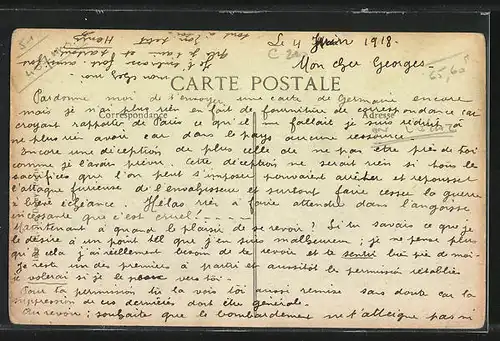 Le 4 Juin 1918-
Mon cher Georges-
CARTE POSTALE
Correspondance
Adresse
Pardonne moi de t'envoyer une carte de Germaine encore
mais je n'ai plus rien en fait de fourniture de correspondance car
croyant rapporter de Paris ce qu'il me fallait je suis réduit à
ne plus rien avoir car dans le pays aucune ressource.
Encore une déception de plus celle de ne pas être près de toi
comme je l'avais prévu. Cette déception ne serait rien si tous les
sacrifices que l'on peut s'imposer pouvaient arrêter et repousser
l'attaque furieuse de l'envahisseur et surtout faire cesser la guerre
à brève échéance. Hélas rien à faire attendre dans l'angoisse
incessante que c'est cruel! ----
Maintenant à quand le plaisir de se revoir? Si tu savais ce que je
le désire à un point tel que j'en suis malheureux; je ne pense plus
qu'à cela j'ai réellement besoin de te revoir et te sentir près de moi-
Je reste un des premiers à partir et aussitôt les permissions rétablies
je volerai si je le peux vers toi-
Pour ta permission tu la vois toi aussi remise sans doute car la
suppression de ces dernières doit être générale.
Au revoir; souhaite que le bombardement ne t'atteigne pas ni
mon cher